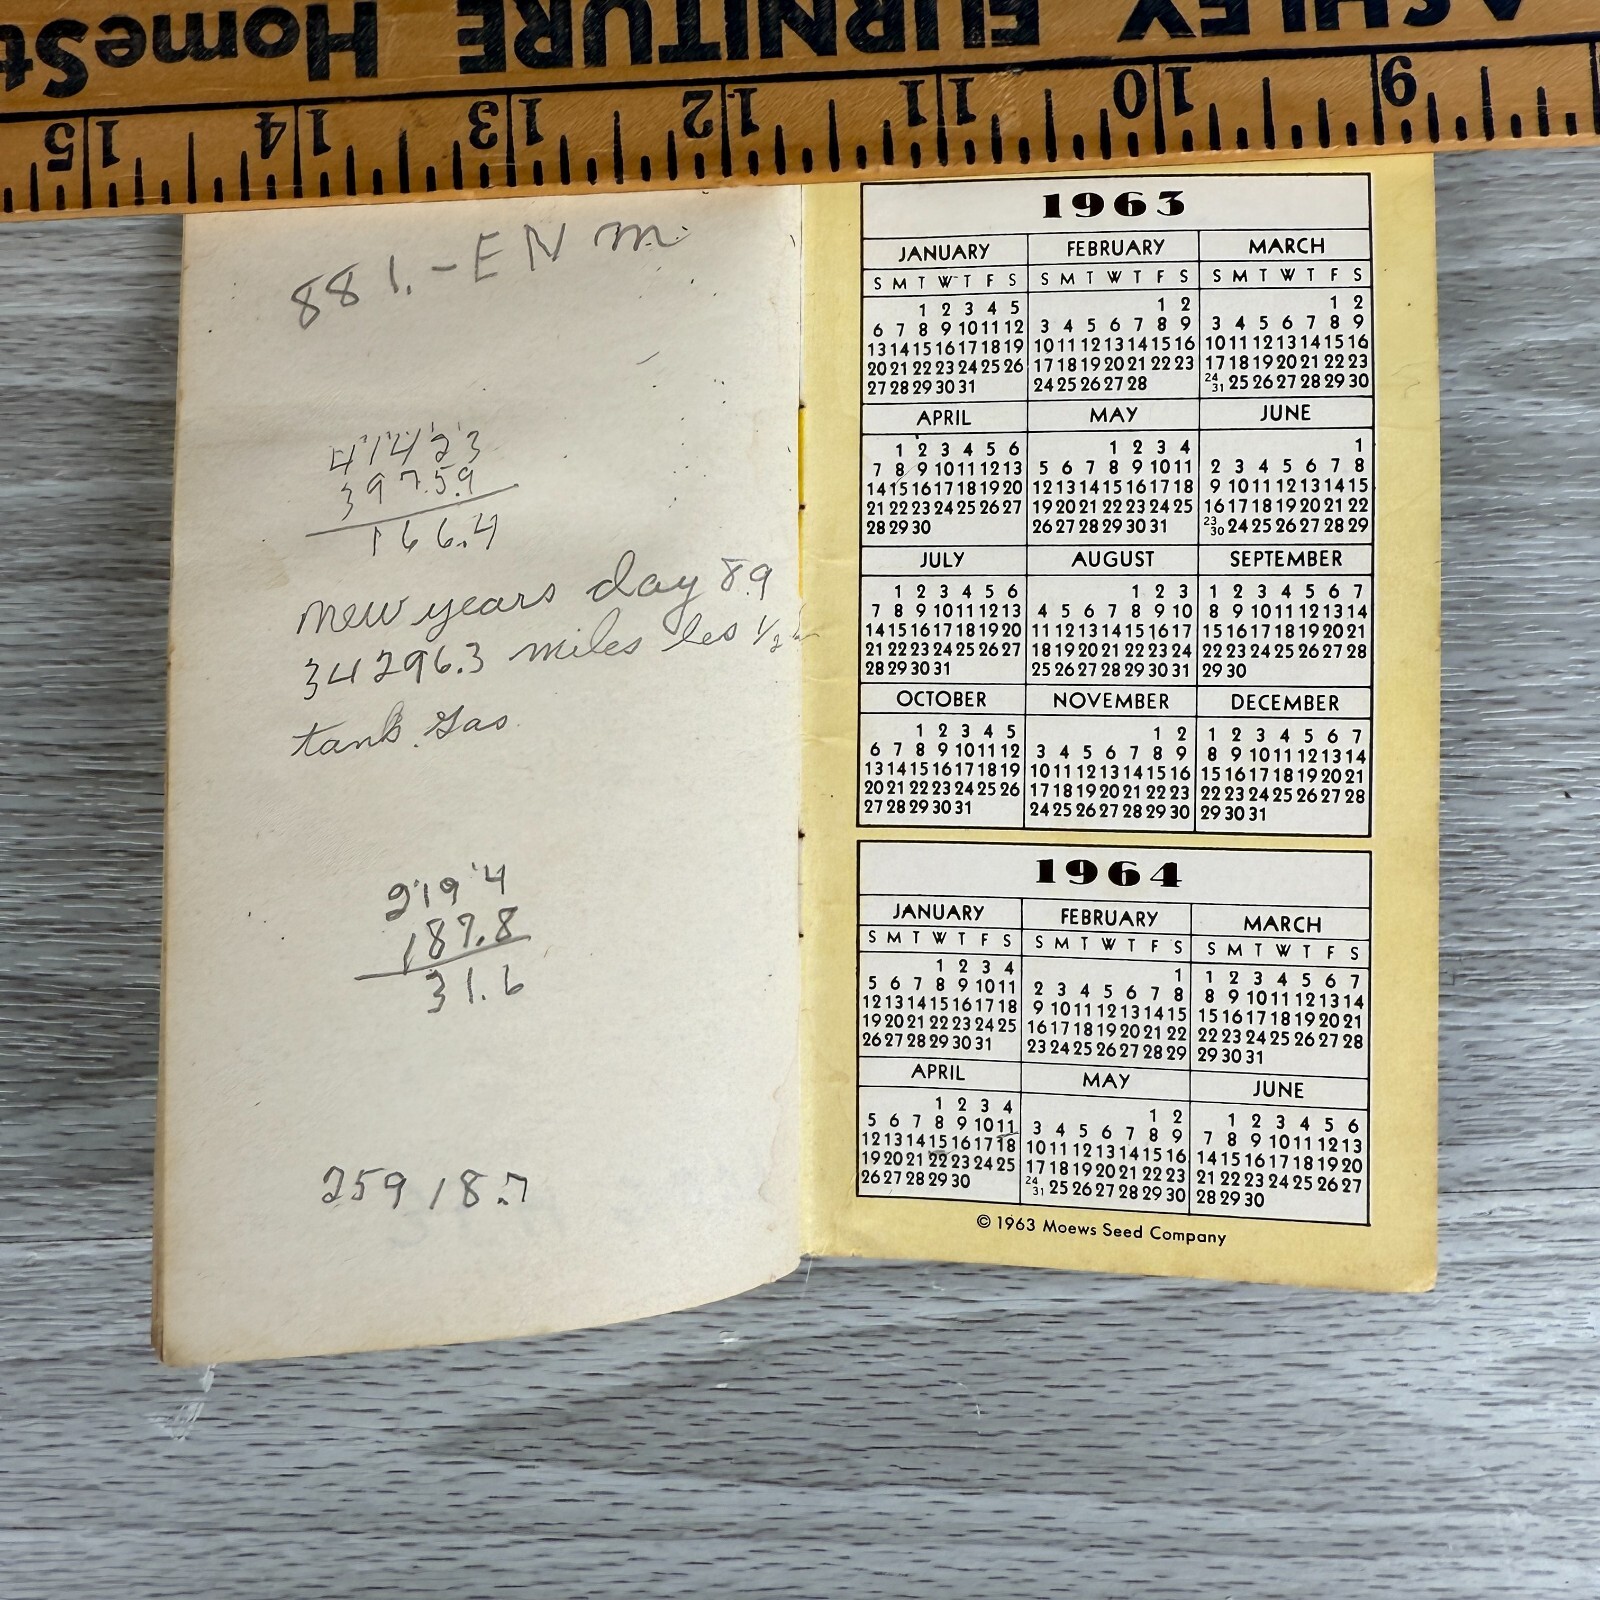 ASHLEY FURNITURE HomeSt
15 14 13 12 11 10 9
881.-EN m
41423
3975.9
166.4
new years day 89
34296.3 miles les 1/2
tank gas
2194
187.8
31.6
259 18.7
1963
JANUARY FEBRUARY MARCH
S M T W T F S S M T W T F S S M T W T F S
1 2 3 4 5 1 2 1 2
6 7 8 9 10 11 12 3 4 5 6 7 8 9 3 4 5 6 7 8 9
13 14 15 16 17 18 19 10 11 12 13 14 15 16 10 11 12 13 14 15 16
20 21 22 23 24 25 26 17 18 19 20 21 22 23 17 18 19 20 21 22 23
27 28 29 30 31 24 25 26 27 28 24/31 25 26 27 28 29 30
APRIL MAY JUNE
1 2 3 4 5 6 1 2 3 4 1
7 8 9 10 11 12 13 5 6 7 8 9 10 11 2 3 4 5 6 7 8
14 15 16 17 18 19 20 12 13 14 15 16 17 18 9 10 11 12 13 14 15
21 22 23 24 25 26 27 19 20 21 22 23 24 25 16 17 18 19 20 21 22
28 29 30 26 27 28 29 30 31 23/30 24 25 26 27 28 29
JULY AUGUST SEPTEMBER
1 2 3 4 5 6 1 2 3 1 2 3 4 5 6 7
7 8 9 10 11 12 13 4 5 6 7 8 9 10 8 9 10 11 12 13 14
14 15 16 17 18 19 20 11 12 13 14 15 16 17 15 16 17 18 19 20 21
21 22 23 24 25 26 27 18 19 20 21 22 23 24 22 23 24 25 26 27 28
28 29 30 31 25 26 27 28 29 30 31 29 30
OCTOBER NOVEMBER DECEMBER
1 2 3 4 5 1 2 1 2 3 4 5 6 7
6 7 8 9 10 11 12 3 4 5 6 7 8 9 8 9 10 11 12 13 14
13 14 15 16 17 18 19 10 11 12 13 14 15 16 15 16 17 18 19 20 21
20 21 22 23 24 25 26 17 18 19 20 21 22 23 22 23 24 25 26 27 28
27 28 29 30 31 24 25 26 27 28 29 30 29 30 31
1964
JANUARY FEBRUARY MARCH
S M T W T F S S M T W T F S S M T W T F S
1 2 3 4 1 1 2 3 4 5 6 7
5 6 7 8 9 10 11 2 3 4 5 6 7 8 8 9 10 11 12 13 14
12 13 14 15 16 17 18 9 10 11 12 13 14 15 15 16 17 18 19 20 21
19 20 21 22 23 24 25 16 17 18 19 20 21 22 22 23 24 25 26 27 28
26 27 28 29 30 31 23 24 25 26 27 28 29 29 30 31
APRIL MAY JUNE
1 2 3 4 1 2 1 2 3 4 5 6
5 6 7 8 9 10 11 3 4 5 6 7 8 9 7 8 9 10 11 12 13
12 13 14 15 16 17 18 10 11 12 13 14 15 16 14 15 16 17 18 19 20
19 20 21 22 23 24 25 17 18 19 20 21 22 23 21 22 23 24 25 26 27
26 27 28 29 30 24/31 25 26 27 28 29 30 28 29 30
© 1963 Moews Seed Company